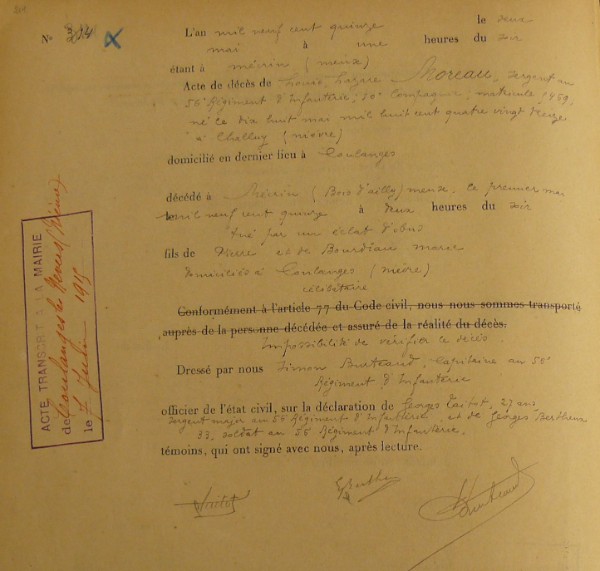 Nº 384
L'an mil neuf cent quinze le deux
mai à une heures du soir
étant à mécrin (meuse)
Acte de décès de Louis Lazare Moreau, sergent au
56e Régiment d'Infanterie, 10e Compagnie, matricule 1459,
né le dix huit mai mil huit cent quatre vingt treize
à (nièvre)
domicilié en dernier lieu à Coulanges
décédé à Mécrin (Bois d'ailly) meuse, le premier mai
le mil neuf cent quinze à deux heures du soir
tué par un éclat d'obus
fils de Pierre et de marie
domiciliés à Coulanges (nièvre)
célibataire
Conformément à l'article 77 du Code civil, nous nous sommes transporté
auprès de la personne décédée et assuré de la réalité du décès.
Impossibilité de vérifier le décès.
Dressé par nous Simon Buteaud, Capitaine au 56e
Régiment d'Infanterie
officier de l'état civil, sur la déclaration de Georges 27 ans
sergent major au 56e Régiment d'Infanterie et de Georges
33, soldat au 56e Régiment d'Infanterie,
témoins, qui ont signé avec nous, après lecture.
ACTE TRANSCRIT A LA MAIRIE
de Coulanges les Nevers (Nièvre)
le 7 1915